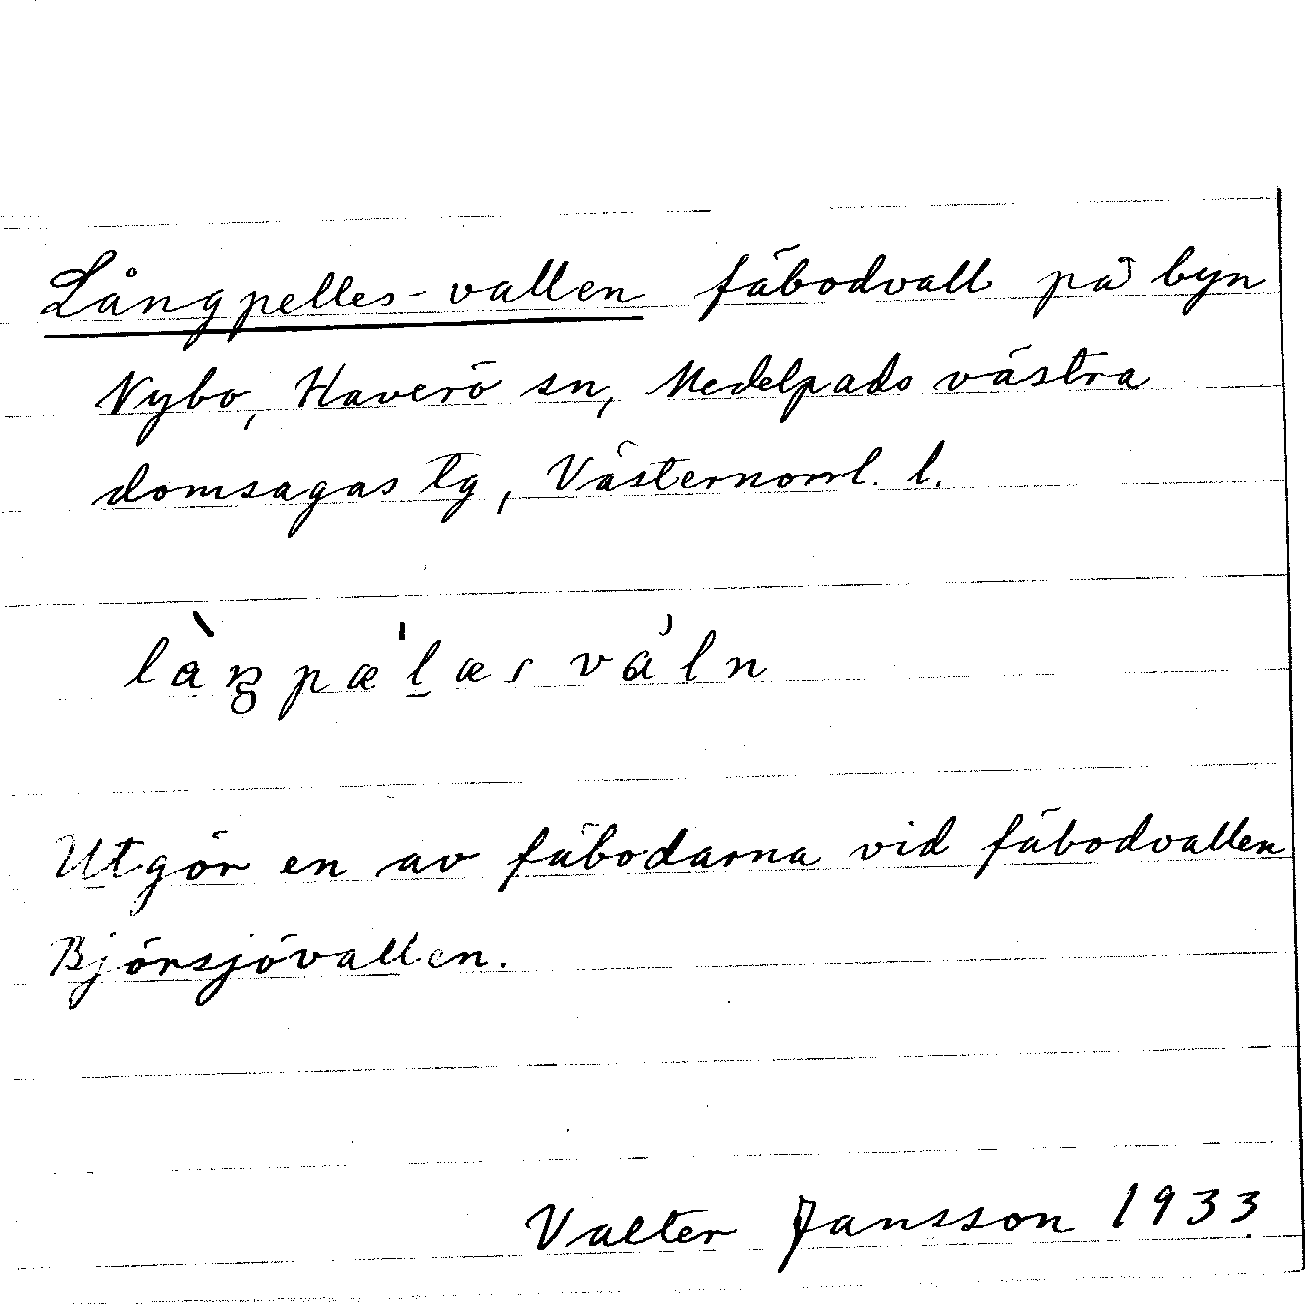 Långpelles-vallen fäbodvall på byn
Nybo, Haverö sn, Medelpads västra
domsagas tg, Västernorrl. l.
làŋpæ'l̠æs vál n
Utgör en av fäbodarna vid fäbodvallen
Björsjövallen.
Valter Jansson 1933.